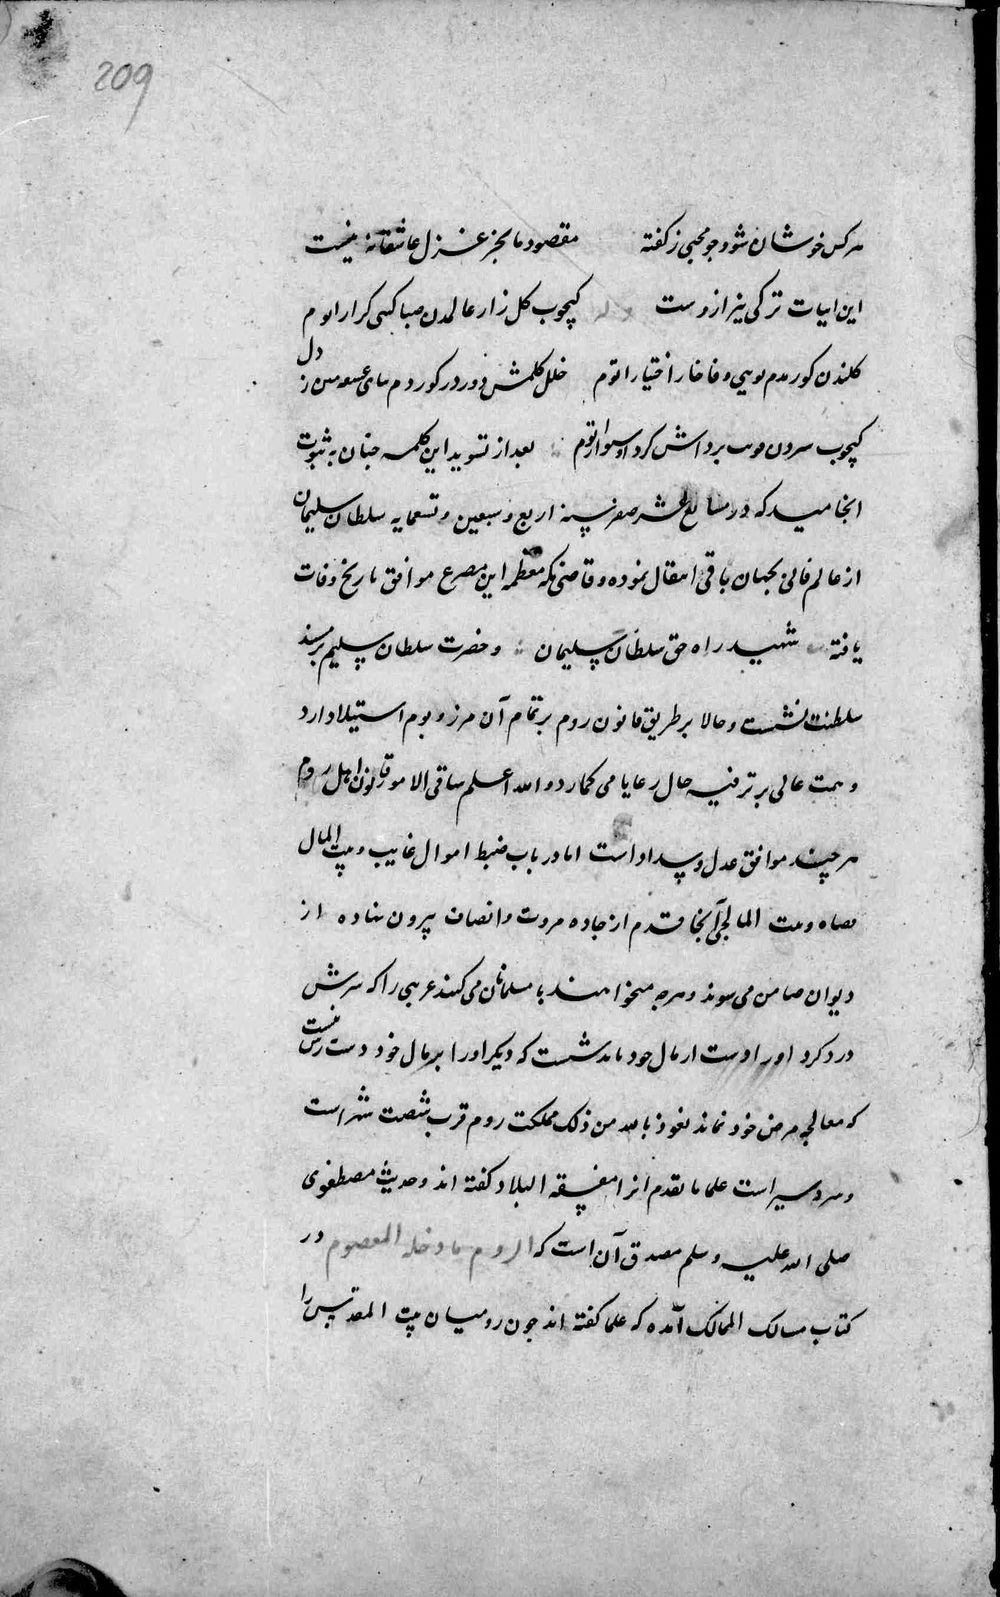 209
هرکس خوشان شود چو محبی ز گفته مقصود ما بجز غزل عاشقانه نیست
این ابیات ترکی نیز ازوست وله کچوب کل زار عالمدن صبا کبی کرار اتوم
کلندن کورمدم بوی وفا خار اختیار اتوم خلل کلمش دور در کوردم دل
کچوب سردن برداش کرد اتوم بعد از تسوید این کلمه چنان به ثبوت
انجامید که در صفر سنه اربع و سبعین و تسعمایه سلطان سلیمان
از عالم فانی بجهان باقی انتقال نموده و قاضی مکه معظمه این مصرع موافق تاریخ وفات
یافته شهید راه حق سلطان سلیمان و حضرت سلطان سلیم بر مسند
سلطنت نشست و حالا بر طریق قانون روم بر تمام آن مرز و بوم استیلا دارد
و همت عالی بر ترفیه حال رعایا می کمارد و الله اعلم ساقی الامور قانون اهل روم
هر چند موافق عدل و سداد است اما در باب ضبط اموال غایب و بیت المال
قضاه و بیت المالچی آنجا قدم از جاده مروت و انصاف بیرون نهاده از
دیوان ضامن می شوند و هرچه میخواهند با مسلمانان می کنند غریبی را که سرش
درد کرد او را دست از مال خود باید شست که دیگر او را بر مال خود دست رس نیست
که معالجه مرض خود نماید نعوذ بالله من ذلک مملکت روم قرب شصت شهر است
و سردسیر است علما ما تقدم آنرا البلاد گفته اند و حدیث مصطفوی
صلی الله علیه وسلم مصدق آن است که الروم ما دخله المعصوم در
کتاب مسالک الممالک آمده که علما گفته اند چون رومیان بیت المقدس را